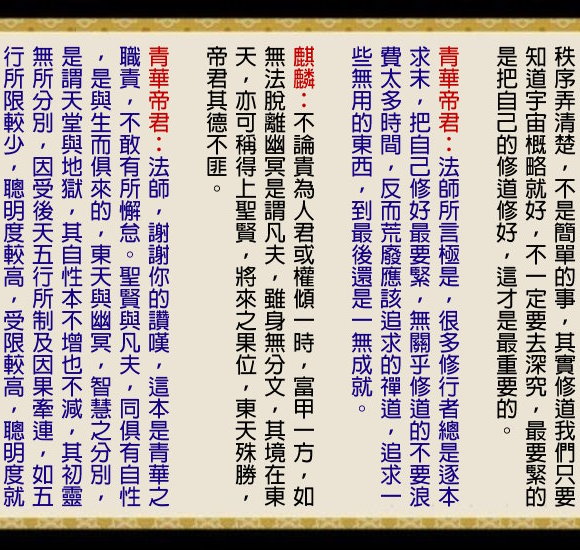 秩序弄清楚，不是簡單的事，其實修道我們只要
知道宇宙概略就好，不一定要去深究，最要緊的
是把自己的修道修好，這才是最重要的。
青華帝君：法師所言極是，很多修行者總是逐本
求末，把自己修好最要緊，無關乎修道的不要浪
費太多時間，反而荒廢應該追求的禪道，追求一
些無用的東西，到最後還是一無成就。
麒麟：不論貴為人君或權傾一時，富甲一方，如
無法脫離幽冥是謂凡夫，雖身無分文，其境在東
天，亦可稱得上聖賢，將來之果位，東天殊勝，
帝君其德不匪。
青華帝君：法師，謝謝你的讚嘆，這本是青華之
職責，不敢有所懈怠。聖賢與凡夫，同俱有自性
，是與生而俱來的，東天與幽冥，智慧之分別，
是謂天堂與地獄，其自性本不增也不減，其初靈
無所分別，因受後天五行所制及因果牽連，如五
行所限較少，聰明度較高，受限較高，聰明度就